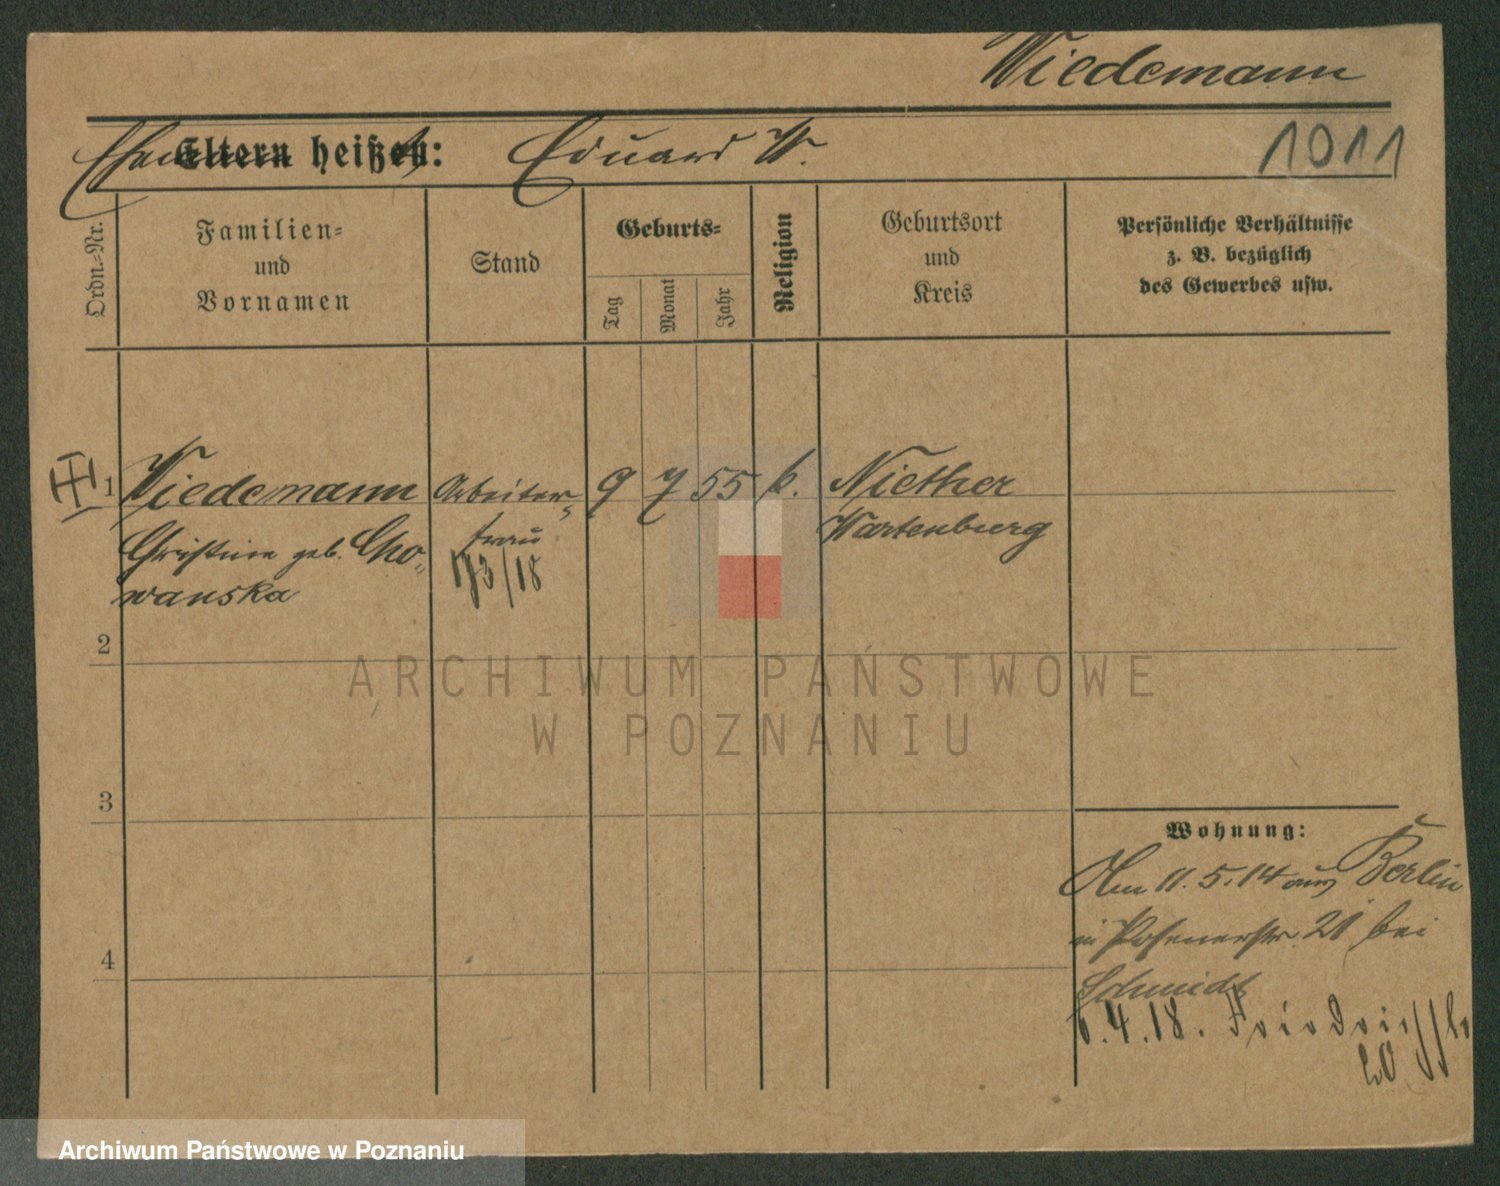 Wiedemann
1011
Eltern heißen: Eduard W.
Ordn.-Nr.
Familien-
und
Vornamen
Stand
Geburts-
Tag
Monat
Jahr
Religion
Geburtsort
und
Kreis
Persönliche Verhältnisse
z. B. bezüglich
des Gewerbes usw.
1 Wiedemann Arbeiter- 9 7 55 k. Niether
Christine geb. Cho- frau Wartenburg
wanska
2
3
4
Wohnung:
Am 11.5.14 aus Berlin
in Posenerstr. 21 bei
Schmidt
6.4.18. Friedrichstr
20
ARCHIWUM PAŃSTWOWE
W POZNANIU
Archiwum Państwowe w Poznaniu